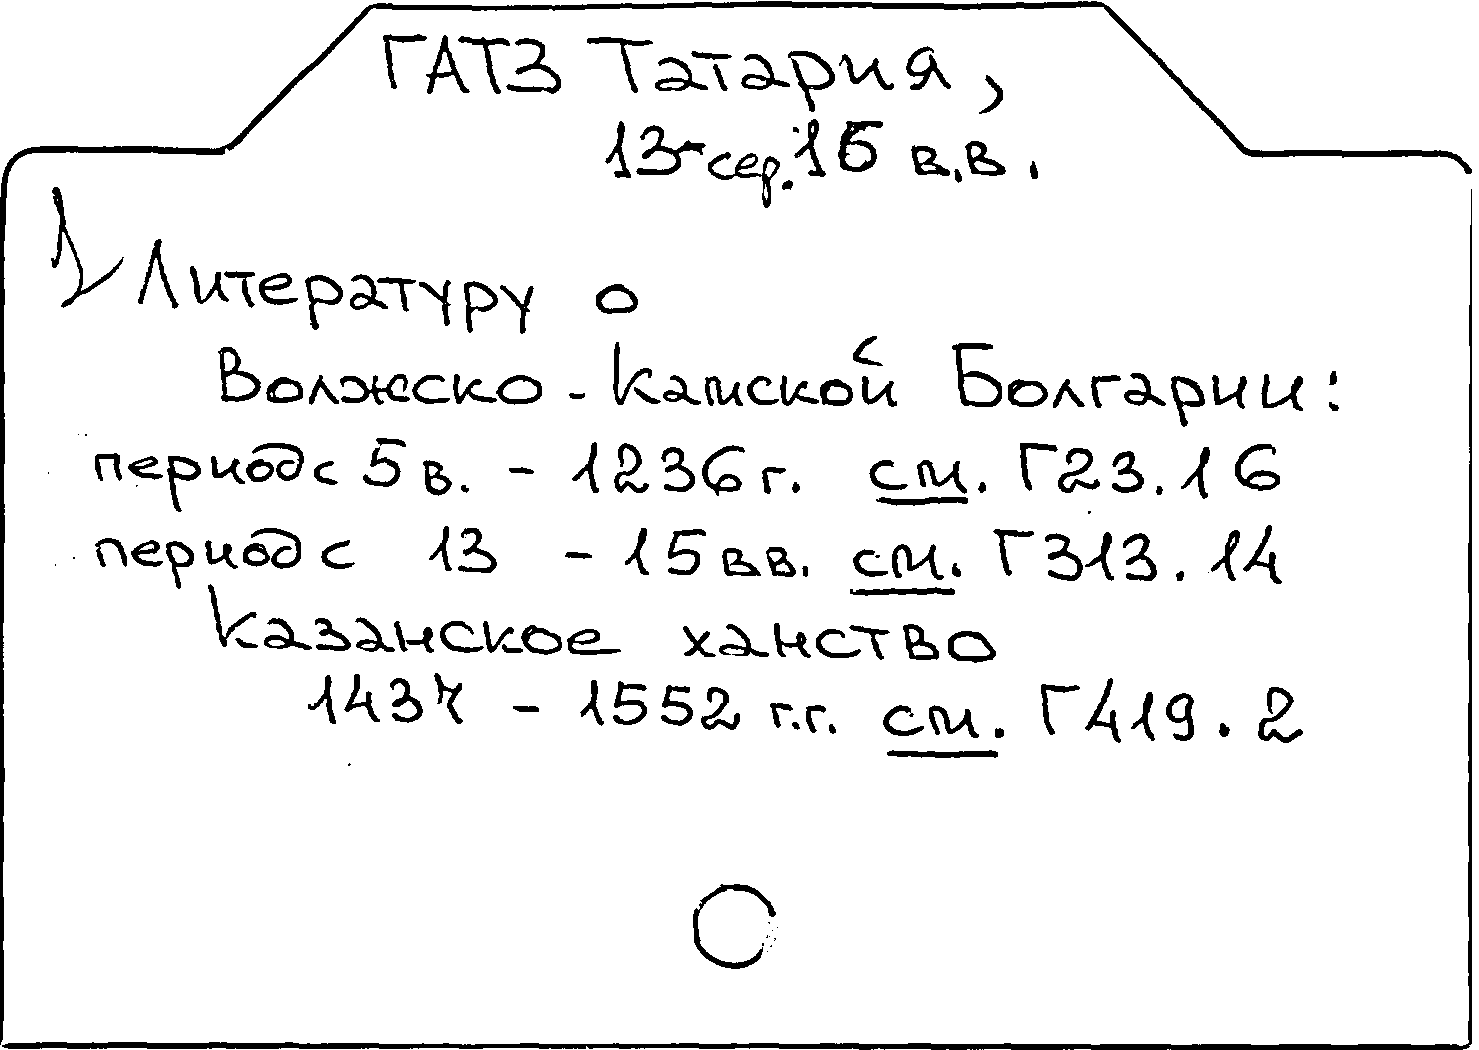 ГАТЗ Татария,
13-сер.16 в.в.
Литературу о
Волжско-Камской Болгарии:
период с 5 в. - 1236 г. см. Г23.16
период с 13 - 15 вв. см. Г313.14
Казанское ханство
1437 - 1552 г.г. см. Г419.2